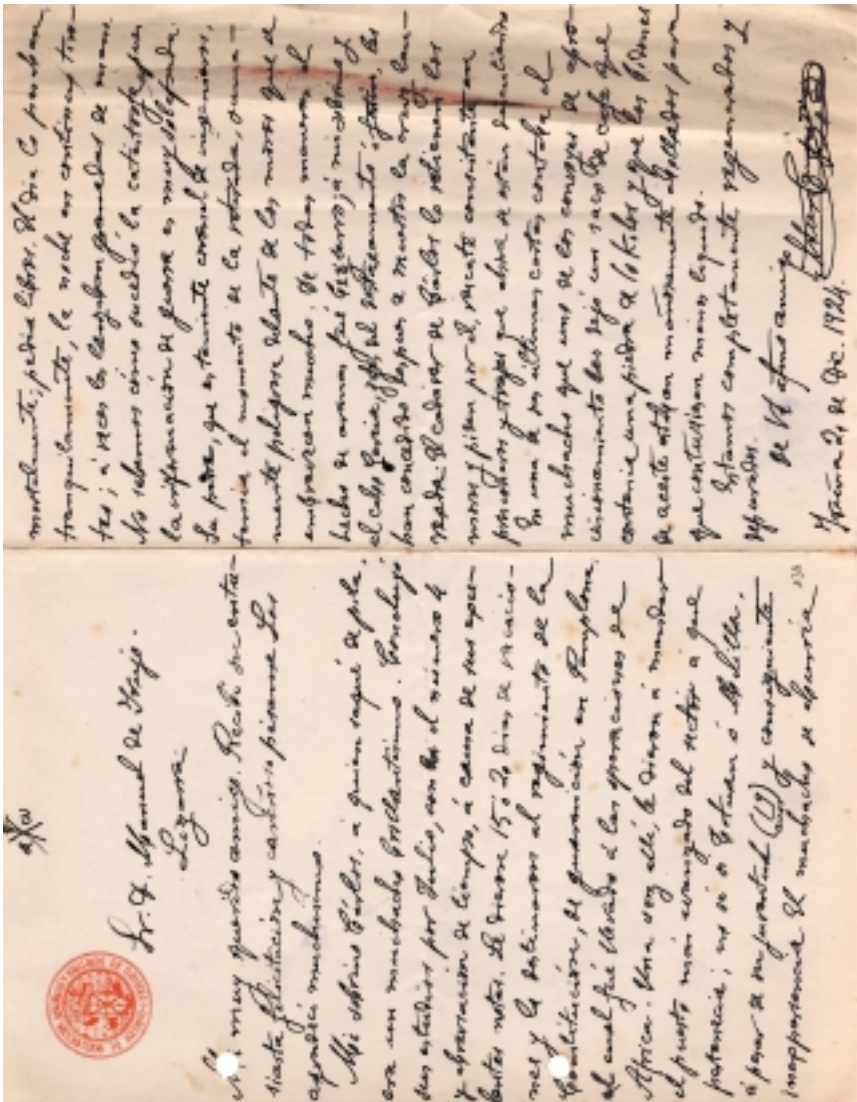 Sr. D. Manuel de Irujo.
Lizarra
Mi muy querido amigo. Recibí su entu-
siasta felicitación y cariñoso pésame. Los
agradecí muchísimo.
Mi sobrino Cárlos, a quien saqué de pila,
era un muchacho brillantísimo. Concluyó
sus estudios por Julio, con el número 4
y abreviación de tiempo, á causa de sus exce-
lentes notas. Le dieron 15 o 20 dias de vacacio-
nes y le destinaron al regimiento de la
Constitución, de guarnición en Pamplona,
el cual fué llevado á las operaciones de
Africa. Una vez allí, le dieron á mandar
el puesto más avanzado del sector a que
pertenecía; no sé si Tetuan ó Melilla,
á pesar de su juventud (19) y consiguiente
inexperiencia. El muchacho se aburría
138
mortalmente; pedia libros. De dia lo pasaban
tranquilamente, la noche en continuos tiro-
teos; á veces les lanzaban granadas de mano.
No sabemos cómo sucedió la catástrofe, pues
la información de guerra es muy
Su padre, que es teniente coronel de ingenieros,
temía el momento de la retirada, suma-
mente peligrosa delante de los moros que se
envalentonan mucho. De todas maneras el
hecho de armas fué bizarro; á mi sobrino y
el cabo García, jefe del destacamento les
han concedido despues de muertos la cruz lau-
reada. El cadaver de Cárlos lo retienen los
moros y piden por él, rescate consistente en
prisioneros y trapos que ahora se están discutiendo
En una de sus últimas cartas contaba el
muchacho que uno de los convoyes de apro-
visionamiento les dejó un saco de café que
contenía una piedra de 10 kilos y que los bidones
de aceite estaban mañosamente abollados para
que contuviesen menos liquido.
Estamos completamente regenerados y
depurados.
De Vd afmo amigo
Iruña 20 de Dic. 1924.